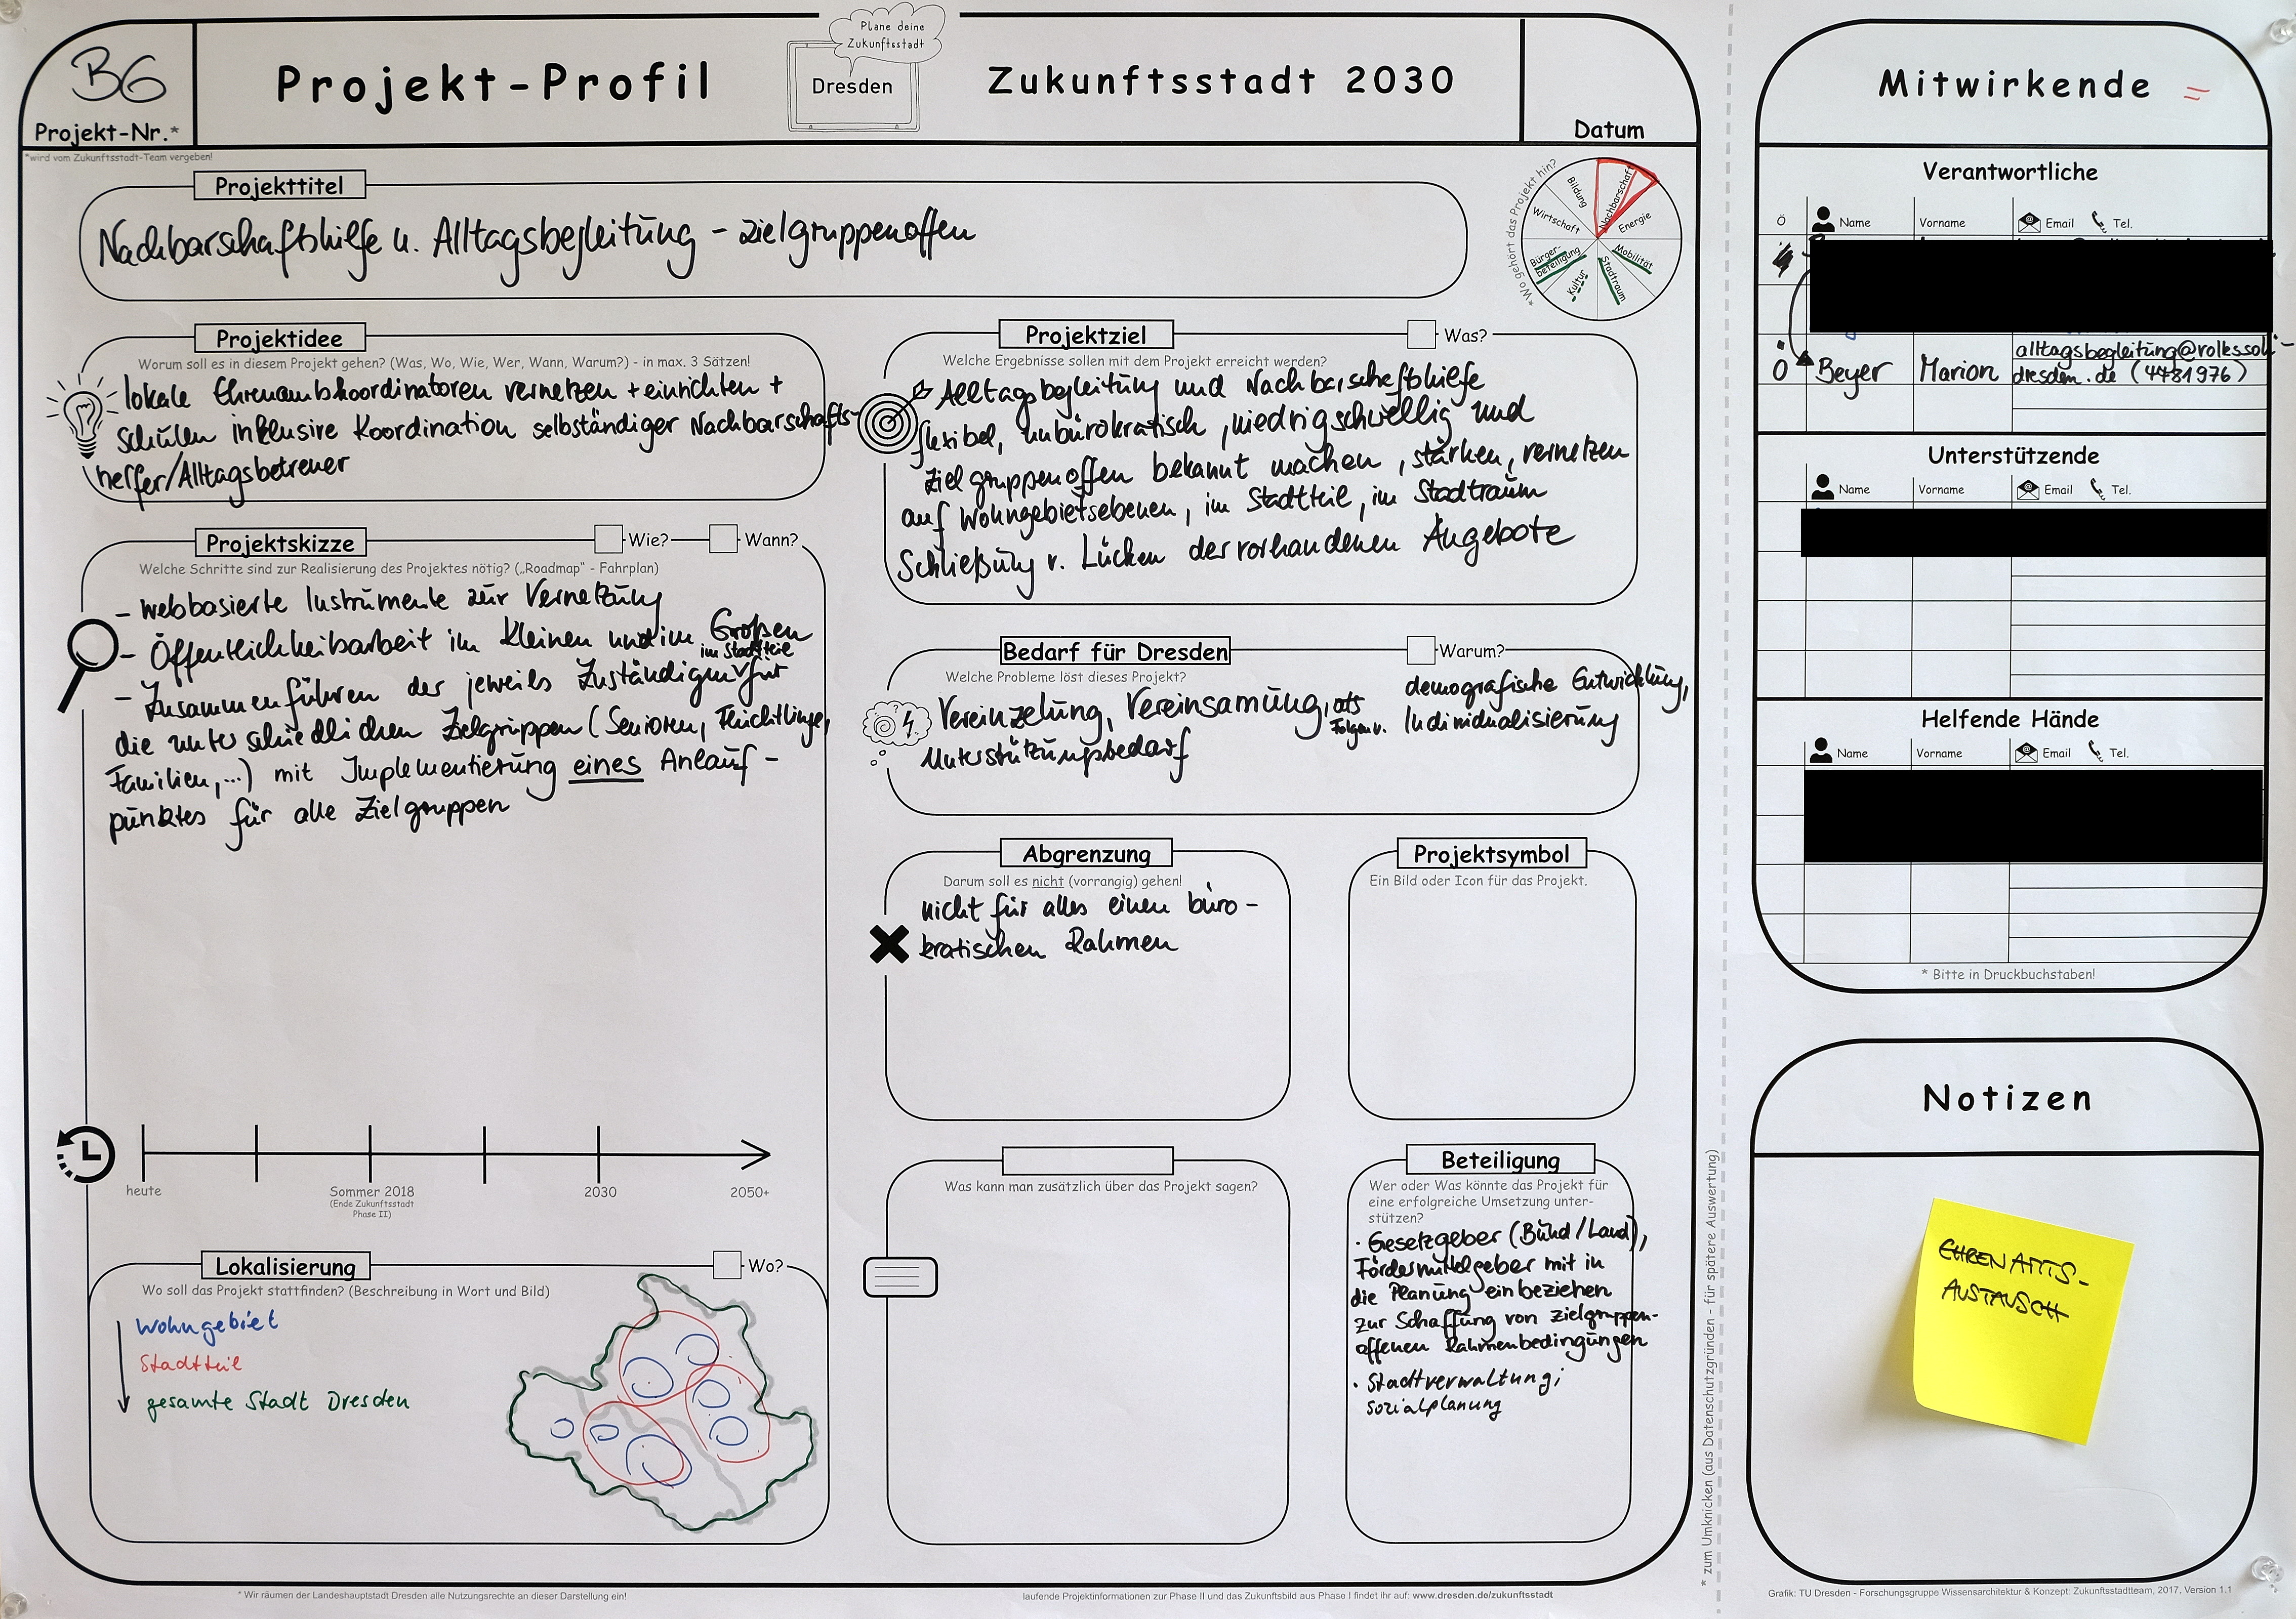 B6
Projekt-Nr.*
*wird vom Zukunftsstadt-Team vergeben!
Projekt-Profil
Plane deine
Zukunftsstadt
Dresden
Zukunftsstadt 2030
Datum
Projekttitel
Nachbarschaftshilfe u. Alltagsbegleitung - zielgruppenoffen
*Wo gehört das Projekt hin?
Bildung
Nachbarschaft
Wirtschaft
Energie
Bürger-
beteiligung
Mobilität
Kultur
Stadtraum
Projektidee
Worum soll es in diesem Projekt gehen? (Was, Wo, Wie, Wer, Wann, Warum?) - in max. 3 Sätzen!
lokale Ehrenamtskoordinatoren vernetzen + einrichten +
schulen inklusive Koordination selbständiger Nachbarschafts-
helfer/Alltagsbetreuer
Projektskizze
Wie?
Wann?
Welche Schritte sind zur Realisierung des Projektes nötig? („Roadmap" - Fahrplan)
- webbasierte Instrumente zur Vernetzung
- Öffentlichkeitsarbeit im Kleinen und im Großen
im Stadtteile
- Zusammenführen der jeweils Zuständigen für
die unterschiedlichen Zielgruppen (Senioren, Flüchtlinge,
Familien,...) mit Implementierung eines Anlauf-
punktes für alle Zielgruppen
heute
Sommer 2018
(Ende Zukunftsstadt
Phase II)
2030
2050+
Lokalisierung
Wo?
Wo soll das Projekt stattfinden? (Beschreibung in Wort und Bild)
Wohngebiet
Stadtteil
gesamte Stadt Dresden
Projektziel
Was?
Welche Ergebnisse sollen mit dem Projekt erreicht werden?
Alltagsbegleitung und Nachbarschaftshilfe
flexibel, unbürokratisch, niedrigschwellig und
zielgruppenoffen bekannt machen, stärken, vernetzen
auf Wohngebietsebenen, im Stadtteil, im Stadtraum
Schließung v. Lücken der vorhandenen Angebote
Bedarf für Dresden
Warum?
Welche Probleme löst dieses Projekt?
Vereinzelung, Vereinsamung, als
Folgen v. demografische Entwicklung,
Individualisierung
Unterstützungsbedarf
Abgrenzung
Darum soll es nicht (vorrangig) gehen!
nicht für alles einen büro-
kratischen Rahmen
Projektsymbol
Ein Bild oder Icon für das Projekt.
Was kann man zusätzlich über das Projekt sagen?
Beteiligung
Wer oder Was könnte das Projekt für
eine erfolgreiche Umsetzung unter-
stützen?
· Gesetzgeber (Bund/Land),
Fördermittelgeber mit in
die Planung einbeziehen
zur Schaffung von zielgruppen-
offenen Rahmenbedingungen
· Stadtverwaltung;
Sozialplanung
* Wir räumen der Landeshauptstadt Dresden alle Nutzungsrechte an dieser Darstellung ein!
laufende Projektinformationen zur Phase II und das Zukunftsbild aus Phase I findet ihr auf: www.dresden.de/zukunftsstadt
* zum Umknicken (aus Datenschutzgründen - für spätere Auswertung)
Mitwirkende =
Verantwortliche
Ö Name Vorname Email Tel.
Ö Beyer Marion alltagsbegleitung@volkssoli-
dresden.de (4481976)
Unterstützende
Name Vorname Email Tel.
Helfende Hände
Name Vorname Email Tel.
* Bitte in Druckbuchstaben!
Notizen
EHRENAMTS-
AUSTAUSCH
Grafik: TU Dresden - Forschungsgruppe Wissensarchitektur & Konzept: Zukunftsstadtteam, 2017, Version 1.1